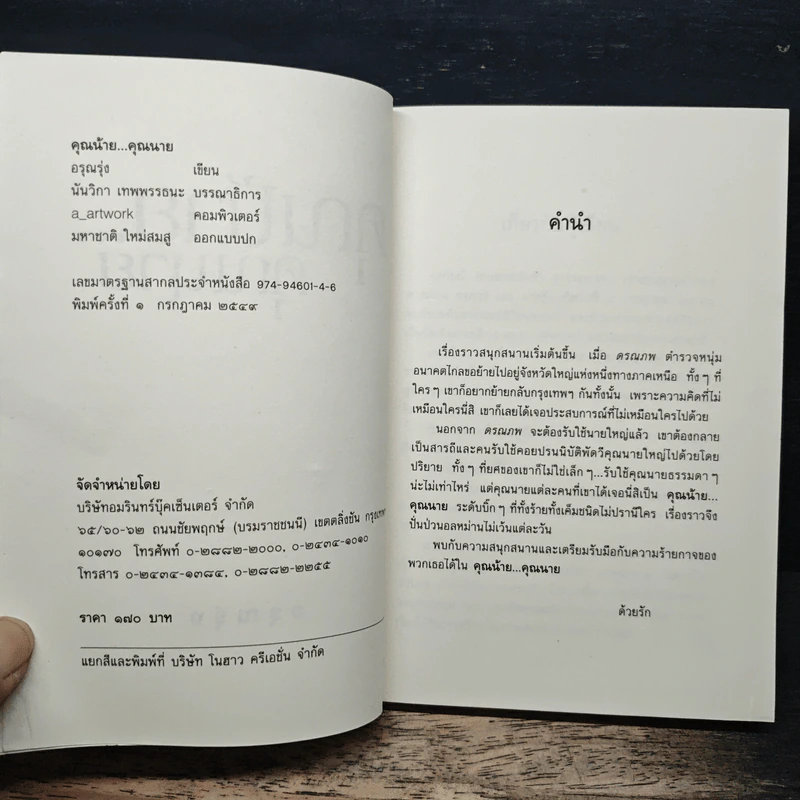 คุณน้าย...คุณนาย
อรุณรุ่ง เขียน
นันวิกา เทพพรรธนะ บรรณาธิการ
a_artwork คอมพิวเตอร์
มหาชาติ ใหม่สมสู ออกแบบปก
เลขมาตรฐานสากลประจำหนังสือ 974-94601-4-6
พิมพ์ครั้งที่ ๑ กรกฎาคม ๒๕๔๙
จัดจำหน่ายโดย
บริษัทอมรินทร์บุ๊คเซ็นเตอร์ จำกัด
๖๕/๖๐-๖๒ ถนนชัยพฤกษ์ (บรมราชชนนี) เขตตลิ่งชัน กรุงเทพฯ
๑๐๑๗๐ โทรศัพท์ ๐-๒๘๘๒-๒๐๐๐, ๐-๒๔๓๔-๑๐๑๐
โทรสาร ๐-๒๔๓๔-๑๓๘๔, ๐-๒๘๘๒-๒๒๕๕
ราคา ๑๗๐ บาท
แยกสีและพิมพ์ที่ บริษัท โนฮาว ครีเอชั่น จำกัด
คำนำ
เรื่องราวสนุกสนานเริ่มต้นขึ้น เมื่อ ดรณภพ ตำรวจหนุ่ม
อนาคตไกลขอย้ายไปอยู่จังหวัดใหญ่แห่งหนึ่งทางภาคเหนือ ทั้งๆ ที่
ใครๆ เขาก็อยากย้ายกลับกรุงเทพฯ กันทั้งนั้น เพราะความคิดที่ไม่
เหมือนใครนี่สิ เขาก็เลยได้เจอประสบการณ์ที่ไม่เหมือนใครไปด้วย
นอกจาก ดรณภพ จะต้องรับใช้นายใหญ่แล้ว เขาต้องกลาย
เป็นสารถีและคนรับใช้คอยปรนนิบัติพัดวีคุณนายใหญ่ไปด้วยโดย
ปริยาย ทั้งๆ ที่ยศของเขาก็ไม่ใช่เล็กๆ...รับใช้คุณนายธรรมดาๆ
น่ะไม่เท่าไหร่ แต่คุณนายแต่ละคนที่เขาได้เจอนี่สิเป็น คุณน้าย...
คุณนาย ระดับบิ๊กๆ ที่ทั้งร้ายทั้งเค็มชนิดไม่ปรานีใคร เรื่องราวจึง
ปั่นป่วนอลหม่านไม่เว้นแต่ละวัน
พบกับความสนุกสนานและเตรียมรับมือกับความร้ายกาจของ
พวกเธอได้ใน คุณน้าย...คุณนาย
ด้วยรัก